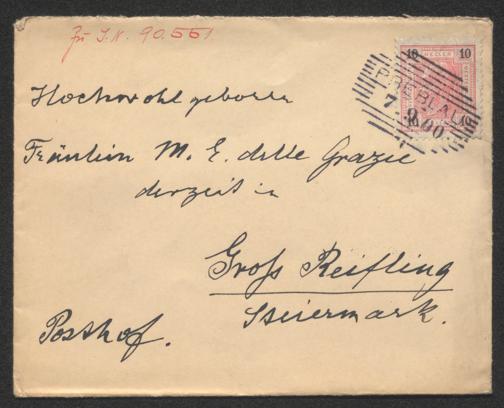 Zu I.N. 90.551
10 HELLER 10
PREBLAU
7 9 00
Hochwohlgeboren
Fräulein M. E. delle Grazie
derzeit in
Groß Reifling
Steiermark.
Posthof.